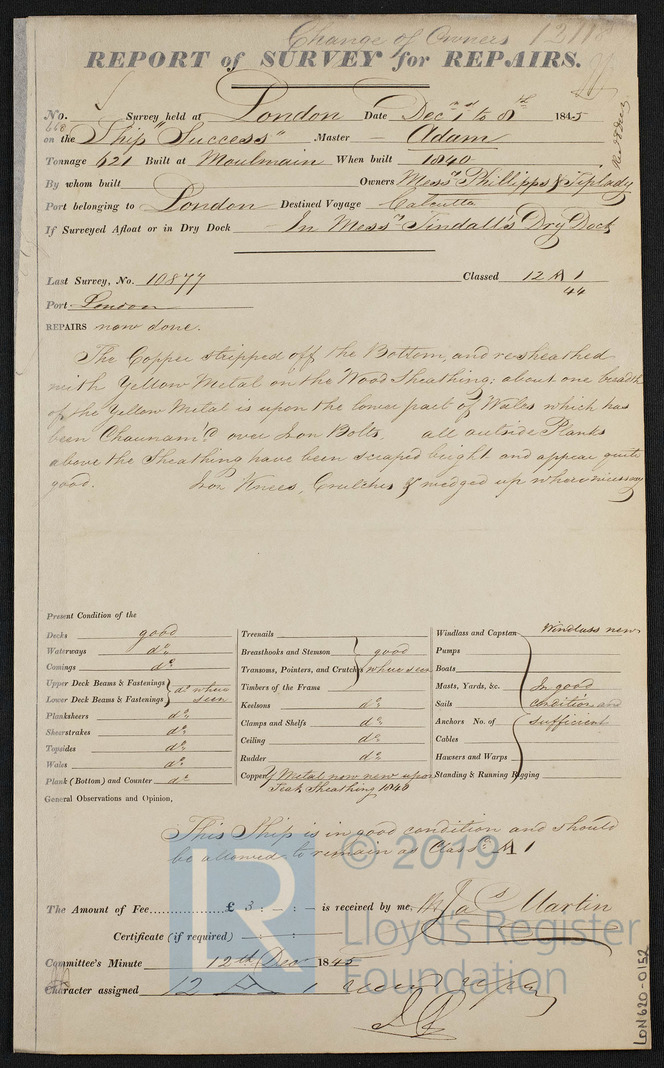 Change of Owners
REPORT of SURVEY for REPAIRS.
No. Survey held at London Date Decr 1st to 8th 1845
on the Ship "Success" Master Adam
Tonnage 621 Built at Moulmain When built 1840
By whom built Owners Messrs Phillipps & Tiplady
Port belonging to London Destined Voyage Calcutta
If Surveyed Afloat or in Dry Dock In Messrs Tindall's Dry Dock
Last Survey, No. 10877 Classed 12 A 1
44
Port London
REPAIRS now done.
The Copper stripped off the Bottom, and resheathed
with Yellow Metal on the Wood Sheathing; about one breadth
of the Yellow Metal is upon the lower part of Wales which has
been Chaunam'd over Iron Bolts, all outside Planks
above the Sheathing have been scraped bright and appear quite
good. Iron Knees, Crutches & wedged up where necessary
Present Condition of the
Decks good
Waterways do
Comings do
Upper Deck Beams & Fastenings do where
Lower Deck Beams & Fastenings seen
Planksheers do
Sheerstrakes do
Topsides do
Wales do
Plank (Bottom) and Counter do
Treenails
Breasthooks and Stemson good
Transoms, Pointers, and Crutches where seen
Timbers of the Frame
Keelsons do
Clamps and Shelfs do
Ceiling do
Rudder do
Copper Y Metal now new upon
Teak Sheathing 1840
Windlass and Capstan Windlass new
Pumps
Boats
Masts, Yards, &c. In good
Sails condition and
Anchors No. of sufficient
Cables
Hawsers and Warps
Standing & Running Rigging
General Observations and Opinion,
This Ship is in good condition and should
be allowed to remain as Classd A 1
The Amount of Fee £ 3 : : is received by me, Jas Martin
Certificate (if required)
Committee's Minute 12th Decr 1845
Character assigned 12 A 1
© 2019
Lloyd's Register
Foundation
LR
LON620-0152